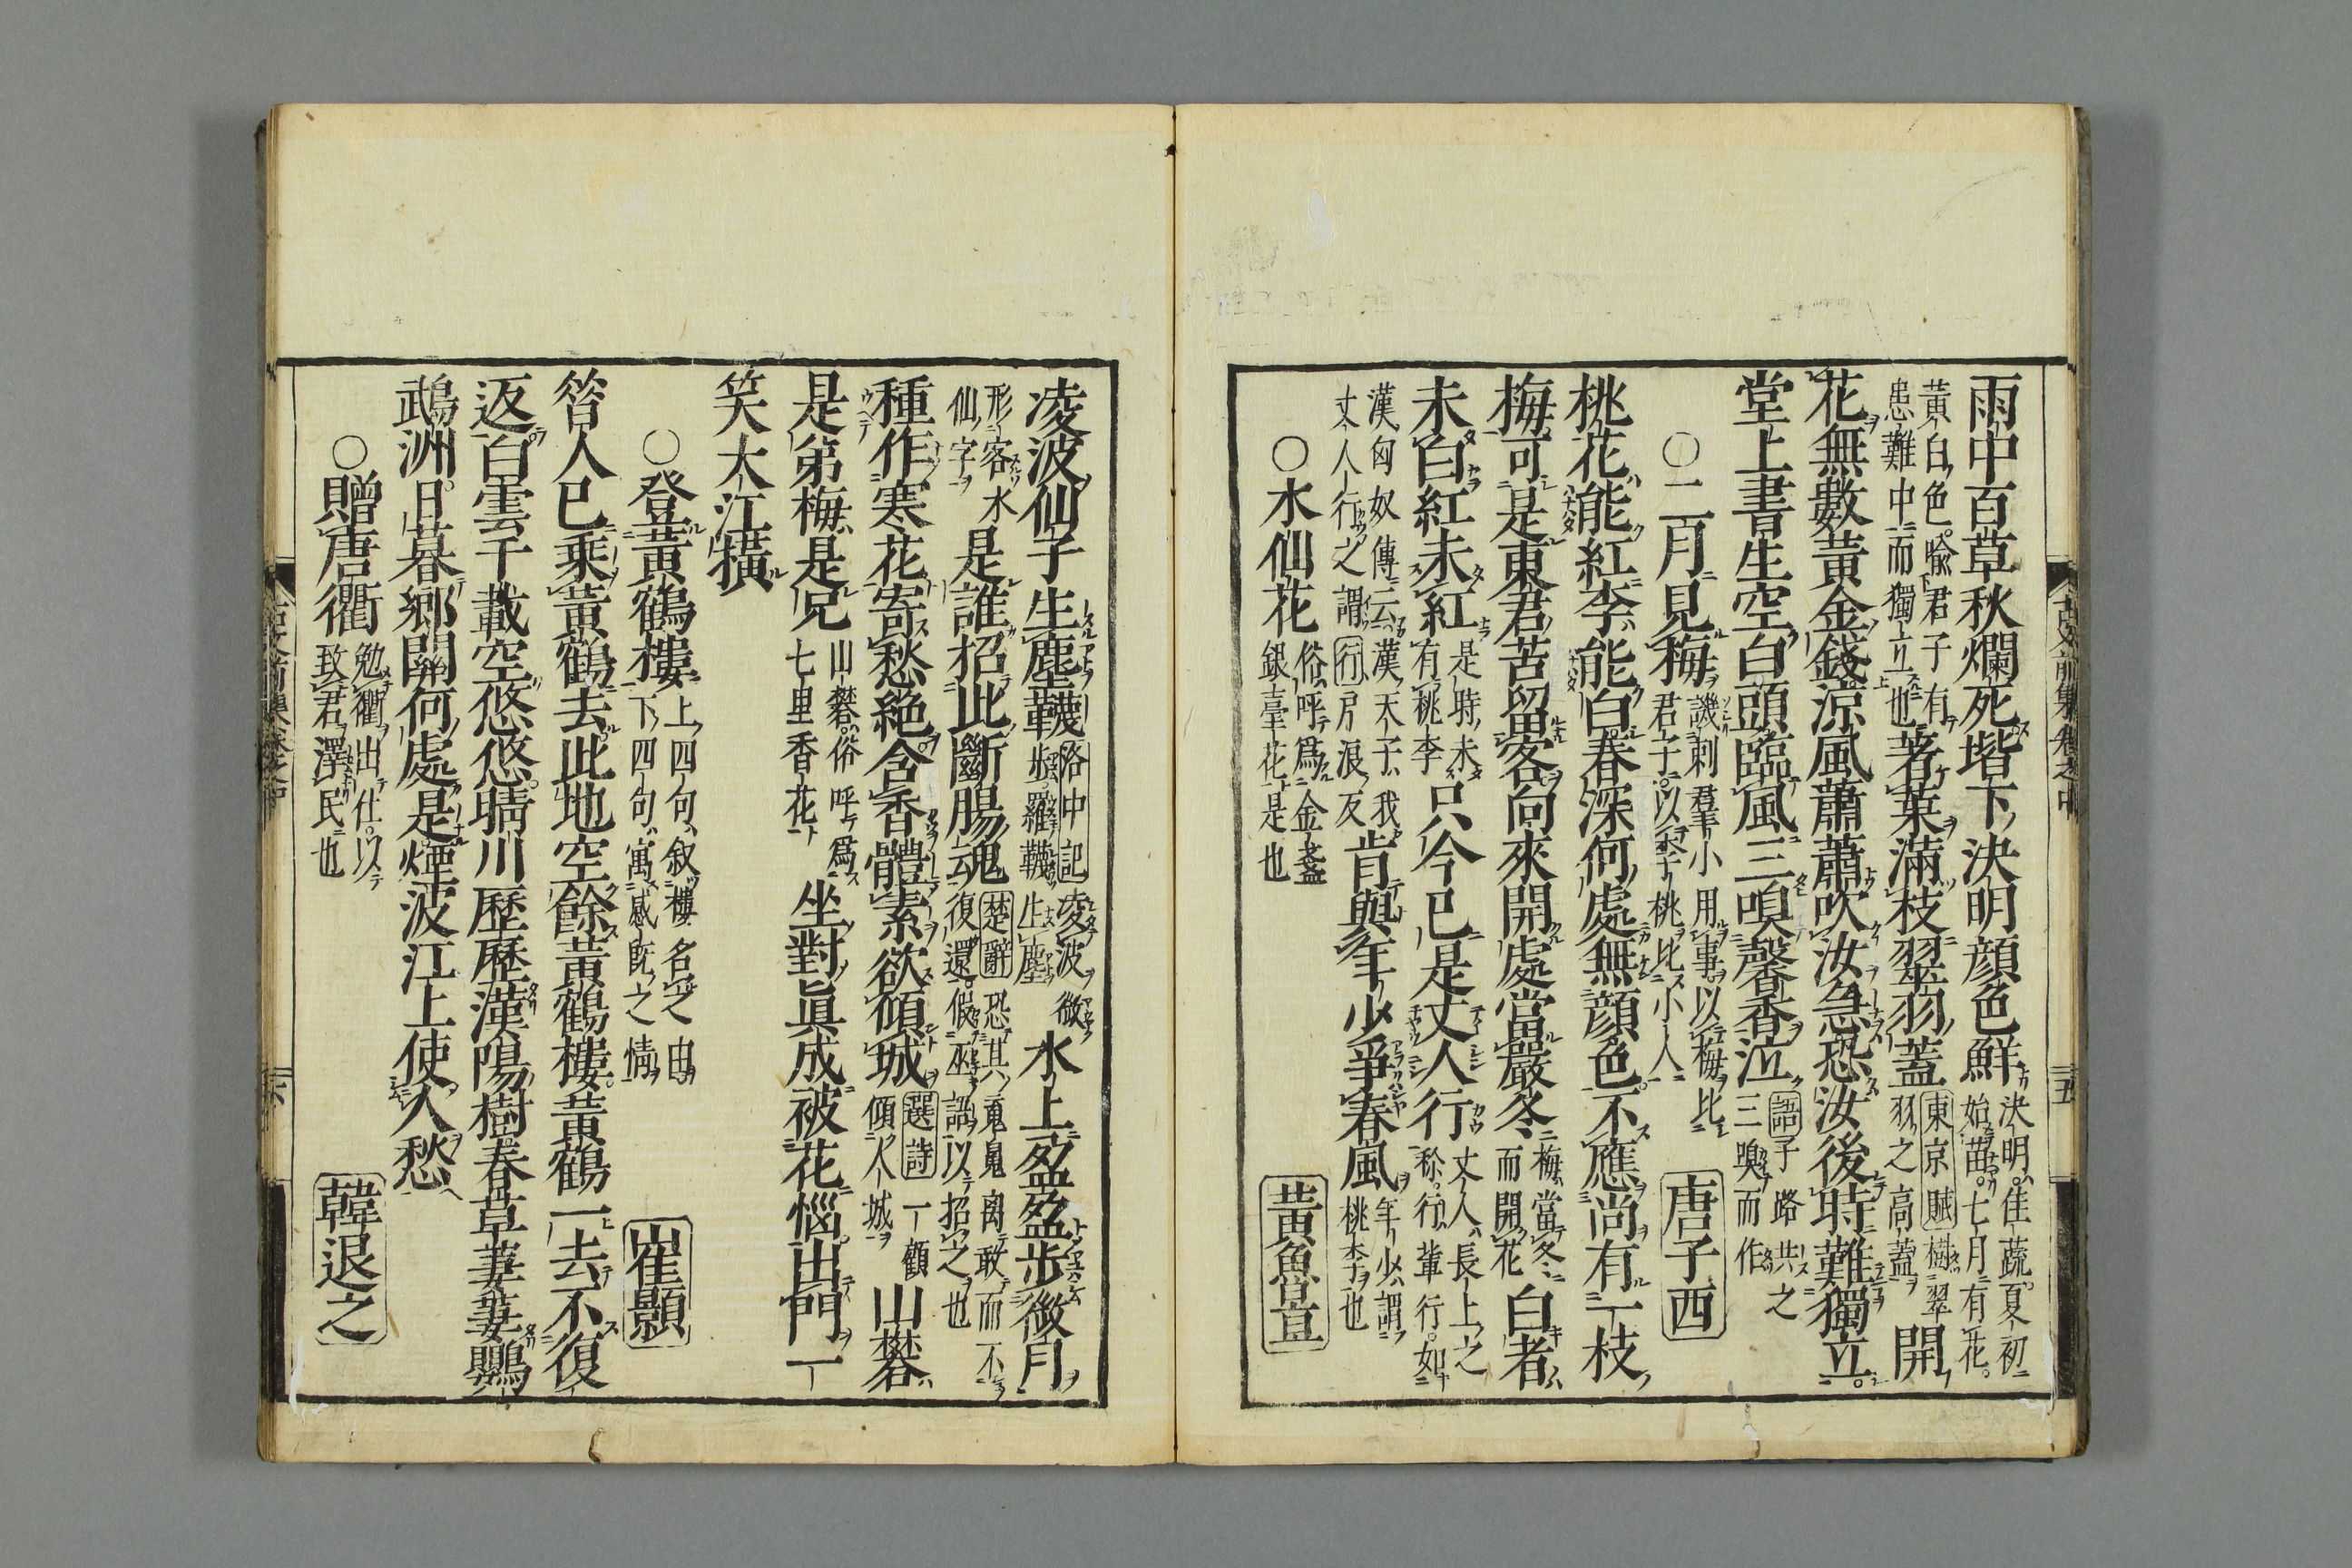 雨中百草秋爛死堦下決明顔色鮮決明佳蔬夏初始苗七月有花
黄白色喩君子有患難中而獨立也著葉滿枝翠羽蓋東京賦樹翠羽之高蓋開
花無數黄金錢涼風蕭蕭吹汝急恐汝後時難獨立
堂上書生空白頭臨風三嗅馨香泣語子路共之三嗅而作
○二月見梅譏刺羣小用事以梅比君子以桃比小人唐子西
桃花能紅李能白春深何處無顔色不應尚有一枝
梅可是東君苦留客向來開處當嚴冬梅當冬而開花白者
未白紅未紅是時未有桃李只今已是丈人行丈人長上之称行輩行如
漢匈奴傳云漢天子我丈人行之謂行戸浪反肯與年少爭春風年少謂桃李也
○水仙花俗呼爲金盞銀臺花是也黄魯直
凌波仙子生塵韈洛中記凌波微步羅韈生塵水上盈盈步微月
形容水仙字是誰招此斷腸魂楚辭恐其䰟鬼离散而不復還假巫語以招之也
種作寒花寄愁絶含香體素欲傾城選詩一顧傾人城山礬
是弟梅是兄山礬俗呼爲七里香花坐對眞成被花惱出門一
笑大江横
○登黄鶴樓上四句叙樓名之由下四句寓感慨之情崔顥
昔人已乘黄鶴去此地空餘黄鶴樓黄鶴一去不復
返白雲千載空悠悠晴川歷歷漢陽樹春草萋萋鸚
鵡洲日暮郷關何處是煙波江上使人愁
○贈唐衢勉衢出仕以致君澤民也韓退之